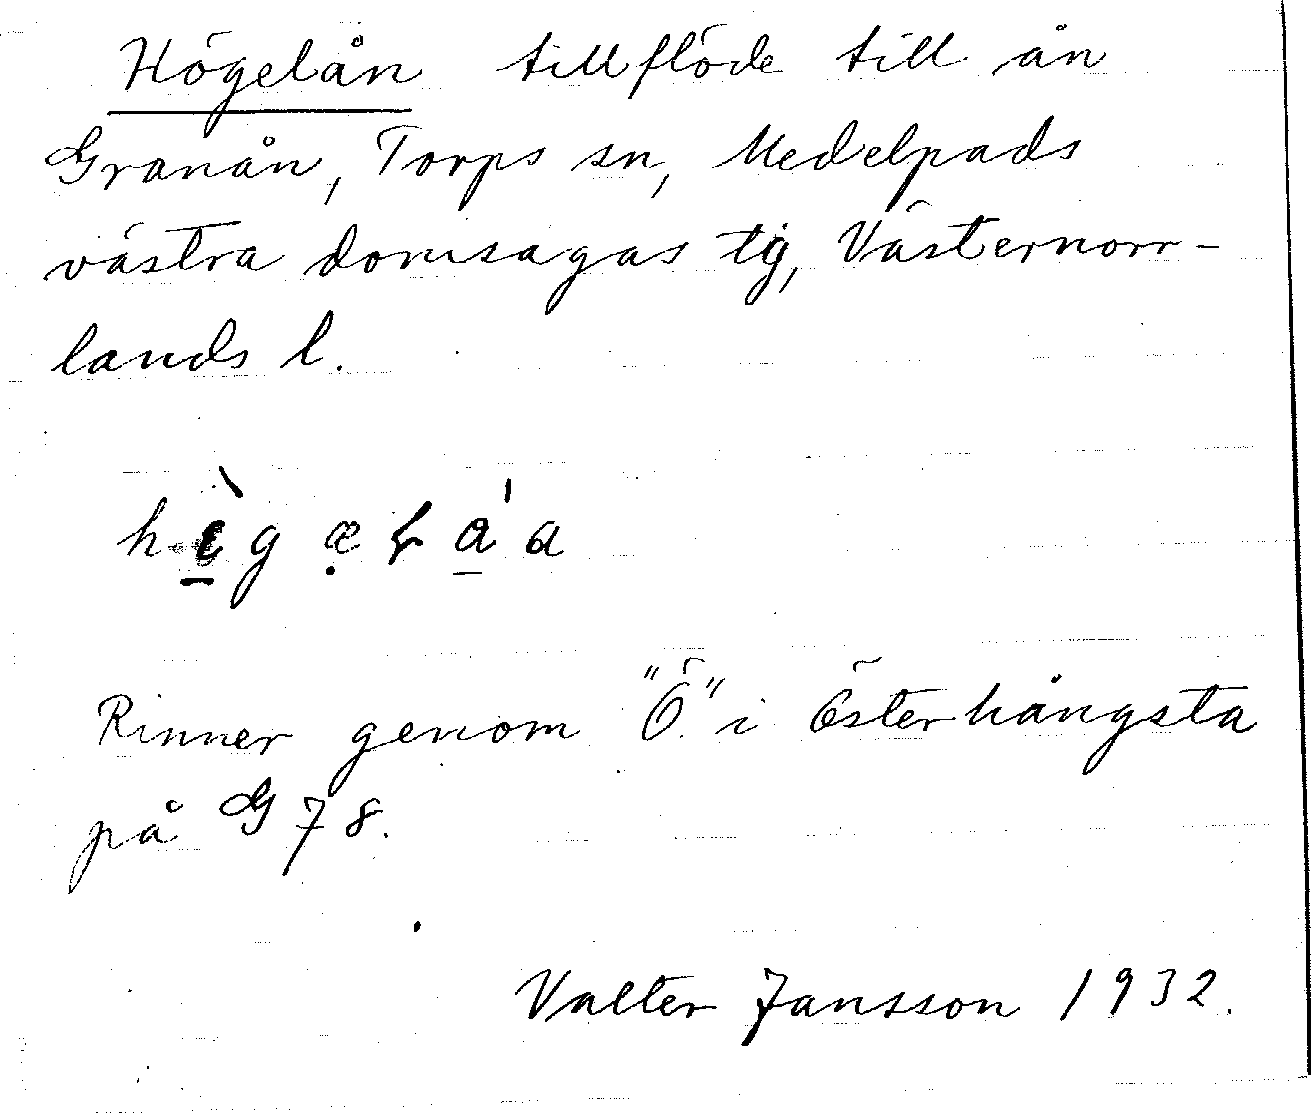 Högelån tillflöde till ån
Granån, Torps sn, Medelpads
västra domsagas tg, Västernorr-
lands l.
Rinner genom "Ö" i Österhångsta
på G 78.
Valter Jansson 1932.